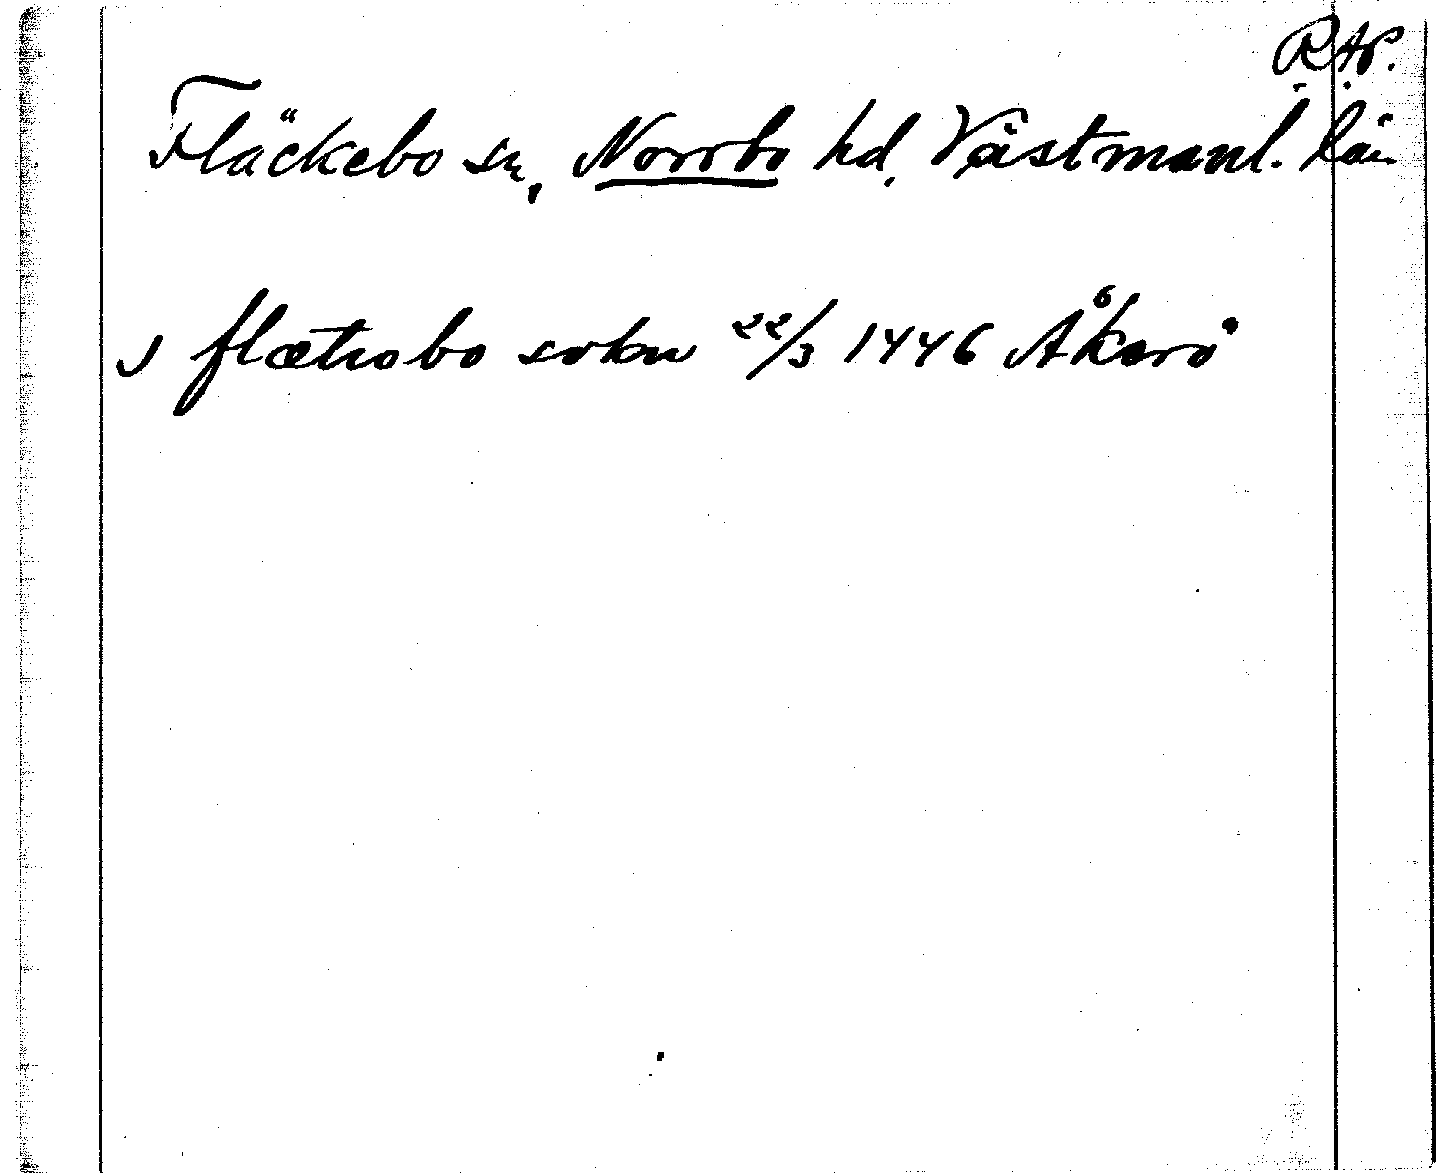 R.A.P.
Fläckebo sn, Norrbo hd, Västmanl. län
J flætæbo sokn 22/3 1446 Åkerö